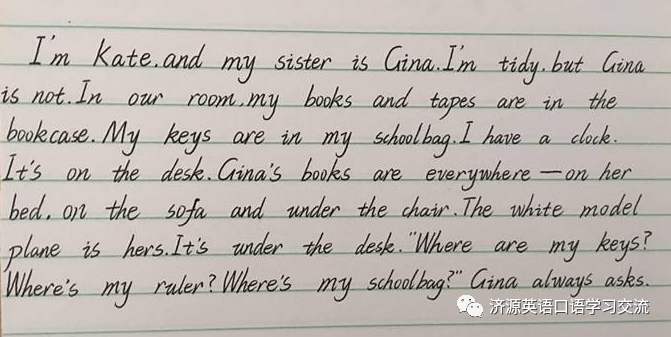 I'm Kate.and my sister is Gina.I'm tidy.but Gina
is not.In our room.my books and tapes are in the
bookcase.My keys are in my schoolbag.I have a clock.
It's on the desk.Gina's books are everywhere—on her
bed. on the sofa and under the chair.The white model
plane is hers.It's under the desk."Where are my keys?
Where's my ruler?Where's my schoolbag?" Gina always asks.
济源英语口语学习交流